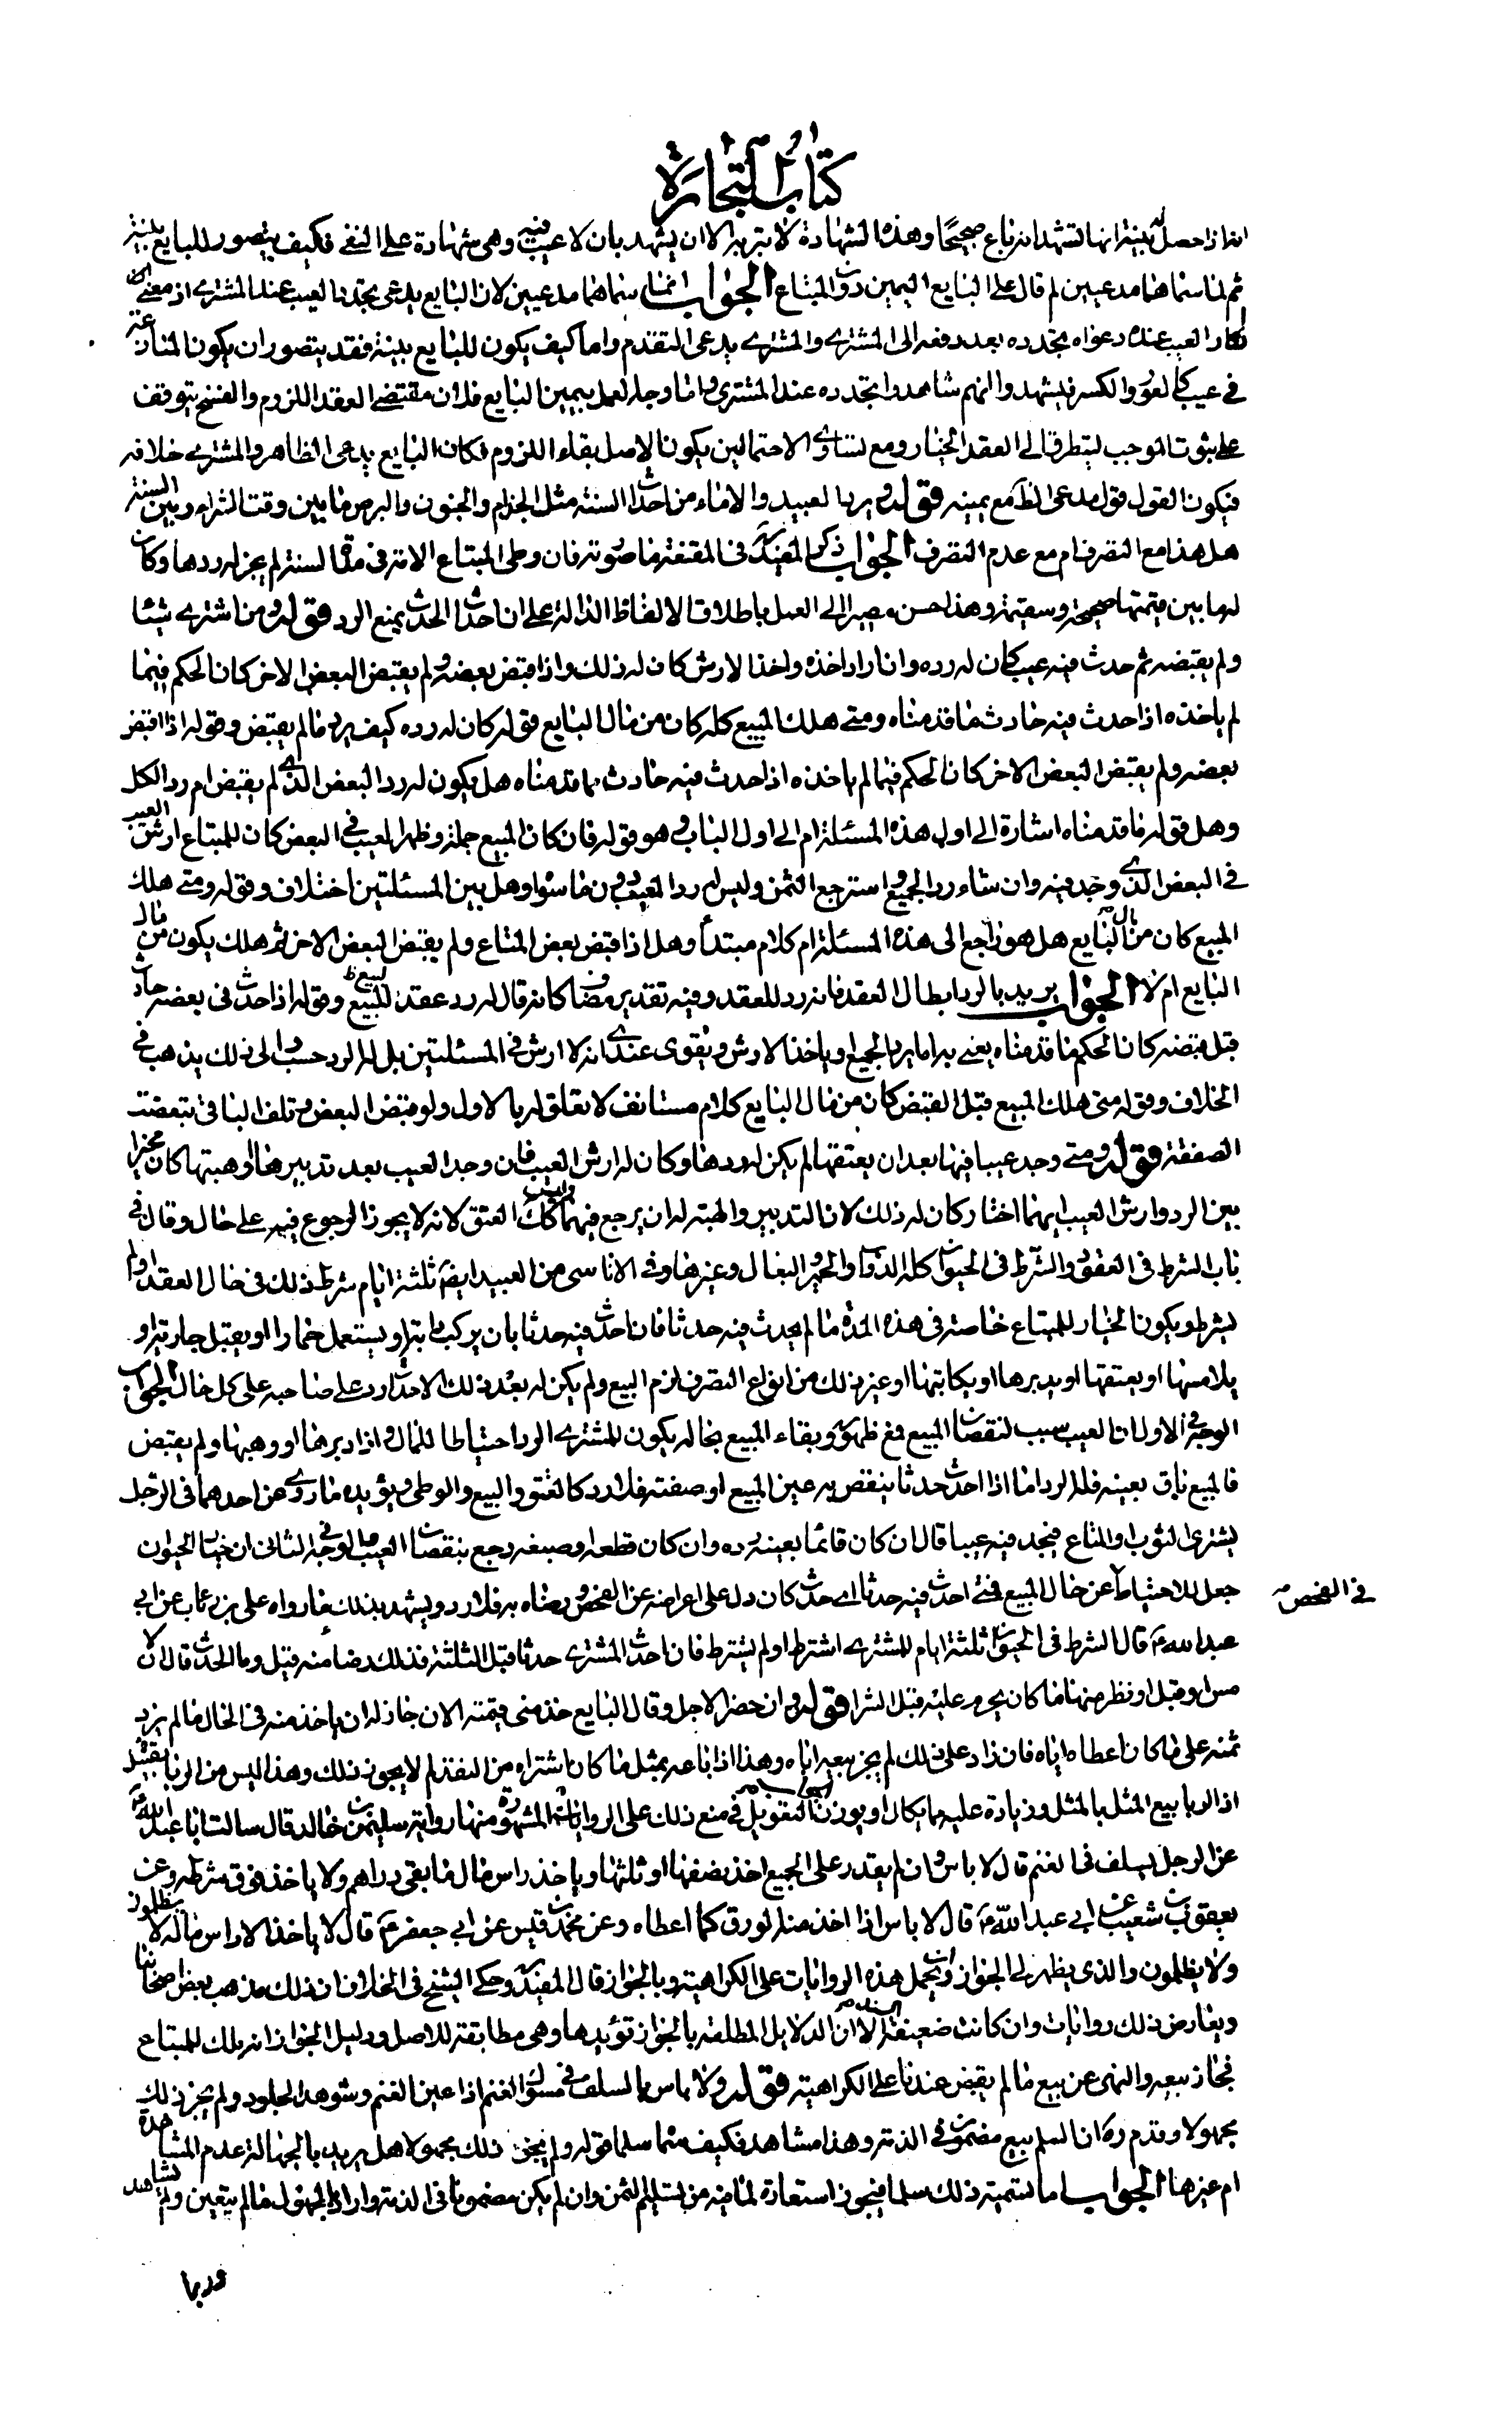 كتاب التجارة
انه اذا حصل له بينة انها تشهد انه باع صحيحا وهذه الشهادة لا تبريه الا ان يشهد بان لا عيب فيه وهي شهادة على النفي فكيف يتصور للبايع بينة
ثم لما سماهما مدعيين لم قال على البايع اليمين دون المبتاع الجواب انما سماهما مدعيين لان البايع يدعى تجدد العيب عند المشتري اذ معنى
انكار العيب عنده دعواه تجدده بعد دفعه الى المشتري والمشتري يدعى التقدم واما كيف يكون للبايع بينة فقد يتصور ان يكون المنازعة
في عيب كالعور والكسر فيشهد انهم شاهدوا تجدده عند المشتري واما وجه العمل بيمين البايع فلان مقتضى العقد اللزوم والفسخ يتوقف
على ثبوت الموجب لتطرق الى العقد الخيار ومع تساوي الاحتمالين يكون الاصل بقاء اللزوم فكان البايع يدعى الظاهر والمشتري خلافه
فيكون القول قول مدعى الظ مع يمينه قوله ويرد العبيد والاماء من احداث السنة مثل الجذام والجنون والبرص ما بين وقت الشراء وبين السنة
هل هذا مع التصرف ام مع عدم التصرف الجواب ذكر المفيد ره في المقنعة ما صورته فان وطى المبتاع الامة في مدة السنة لم يجز له ردها وكان
له ما بين قيمتها صحيحة وسقيمة وهذا حسن مصيرا الى العمل باطلاق الالفاظ الدالة على ان احداث الحدث يمنع الرد قوله ومن اشترى شيئا
ولم يقبضه ثم حدث فيه عيب كان له رده وان اراد اخذه واخذ الارش كان له ذلك واذا قبض بعضه ولم يقبض البعض الاخر كان الحكم فيما
لم ياخذه اذا حدث فيه حادث ما قدمناه ومتى هلك المبيع كله كان من مال البايع قوله كان له رده كيف يرد ما لم يقبض وقوله اذا قبض
بعضه ولم يقبض البعض الاخر كان الحكم فيما لم ياخذه اذا حدث فيه حادث ما قدمناه هل يكون له رد البعض الذي لم يقبض ام رد الكل
وهل قوله ما قدمناه اشارة الى اول هذه المسئلة ام الى اول الباب وهو قوله فان كان المبيع جملة وظهر العيب في البعض كان للمبتاع ارش العيب
في البعض الذي وجد فيه وان شاء رد الجميع واسترجع الثمن وليس له رد المعيب دون ما سواه وهل بين المسئلتين اختلاف وقوله ومتى هلك
المبيع كان من مال البايع هل هو راجع الى هذه المسئلة ام كلام مبتدأ وهل اذا قبض بعض المتاع ولم يقبض البعض الاخر ثم هلك يكون من مال
البايع ام لا الجواب يريد بالرد ابطال العقد فانه رد للعقد وفيه تقدير مضاف كانه قال له رد عقد المبيع وقوله اذا حدث في بعضه حادث
قبل قبضه كان الحكم ما قدمناه يعني به اما يرد الجميع او ياخذ الارش ويقوى عندي انه لا ارش في المسئلتين بل له الرد حسب والى ذلك يذهب في
الخلاف وقوله متى هلك المبيع قبل القبض كان من مال البايع كلام مستانف لا تعلق له بالاول ولو قبض البعض وتلف الباقي تبعضت
الصفقة قوله ومتى وجد عيبا فيها بعد ان يعتقها لم يكن له ردها وكان له ارش العيب فان وجد العيب بعد تدبيرها او هبتها كان مخيرا
بين الرد وارش العيب ايهما اختار كان له ذلك لان التدبير والهبة له ان يرجع فيهما وليس كك العتق لانه لا يجوز الرجوع فيه على حال وقال في
باب الشرط في العقود والشرط في الحيوان كله الدواب والحمير والبغال وغيرها وفي الاناسي من العبيد ايضا ثلثة ايام شرط ذلك في حال العقد او لم
يشرط ويكون الخيار للمبتاع خاصة في هذه المدة ما لم يحدث فيه حدثا فان احدث فيه حدثا بان يركب دابته او يستعمل حمارا او يقبل جارية او
يلامسها او يعتقها او يدبرها او يكاتبها او غير ذلك من انواع التصرف لزم البيع ولم يكن له بعد ذلك الاحداث رد على صاحبه على كل حال الجواب
الوجه في الاول ان العيب سبب لنقصان المبيع فمع ظهوره وبقاء المبيع بحاله يكون للمشتري الرد احتياطا للمال واذا دبرها او وهبها ولم يقبض
فالمبيع باق بعينه فله الرد اما اذا احدث حدثا ينقص به عين المبيع او صفته فلا رد كالعتق والبيع والوطى ويؤيده ما روي عن احدهما في الرجل
يشتري الثوب او المتاع فيجد فيه عيبا قال ان كان قائما بعينه رده وان كان قطعه او صبغه رجع بنقصان العيب والوجه في الثاني ان خيار الحيوان
جعل للاحتياط عن حال المبيع فمتى احدث فيه حدثا اي حدث كان دل على اعراضه عن الفحص ورضاه به فلا رد ويشهد بذلك ما رواه علي بن رئاب عن ابي
في الفحص
عبد الله ع قال الشرط في الحيوان ثلثة ايام للمشتري اشترط او لم يشترط فان احدث المشتري حدثا قبل الثلثة فذلك رضا منه قيل وما الحدث قال ان لا
مس او قبل او نظر منها ما كان يحرم عليه قبل الشرا قوله وان حضر الاجل وقال البايع خذ مني قيمته الان جاز له ان ياخذ منه في الحال ما لم يزد
ثمنه على ما كان اعطاه اياه فان زاد على ذلك لم يجز بيعه اياه وهذا اذا باعه بمثل ما كان اشتراه من النقد لم لا يجوز ذلك وهذا ليس من الربا بقبيل
اذ الربا بيع المثل بالمثل وزيادة عليه مما يكال او يوزن الجواب التعويل في منع ذلك على الروايات المشهورة منها رواية سليمن بن خالد قال سالت ابا عبد الله ع
عن الرجل يسلف في الغنم قال لا باس وان لم يقدر على الجميع اخذ نصفها او ثلثها وياخذ راس مال ما بقي دراهم ولا ياخذ فوق شرطه وعن
يعقوب بن شعيب عن ابي عبد الله ع قال لا باس اذا اخذ منه الورق كما اعطاه وعن محمد بن قيس عن ابي جعفر ع قال لا ياخذ الا راس ماله لا يظلمون
ولا يظلمون والذي يظهر لي الجواز وتحمل هذه الروايات على الكراهية وبالجواز قال المفيد ره وحكى الشيخ في الخلاف ان ذلك مذهب بعض اصحابنا
ويعارض ذلك روايات وان كانت ضعيفة السند الا ان الدلايل المطلقة بالجواز تؤيدها وهي مطابقة للاصل ودليل الجواز انه ملك للمبتاع
فجاز بيعه والنهى عن بيع ما لم يقبض عندنا على الكراهية قوله ولا باس بالسلف في مسوك الغنم اذا عين الغنم وشوهد الجلود ولم يجز ذلك
مجهولا وقدم ره ان السلم بيع مضمون في الذمة وهذا مشاهد فكيف سماه سلما قوله ولم يجز ذلك مجهولا هل يريد بالجهالة عدم المشاهدة
ام غيرها الجواب اما تسمية ذلك سلما فيجوز استعارة لما فيه من تسليم الثمن وان لم يكن مضمونا في الذمة واراد بالمجهول ما لم يتعين ولم يشاهد
وربما